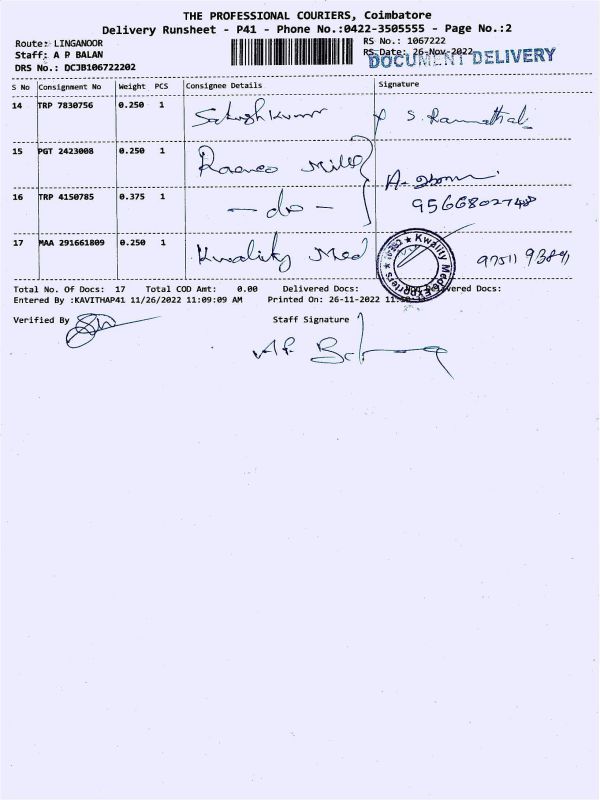 THE PROFESSIONAL COURIERS, Coimbatore
Delivery Runsheet - P41 - Phone No.:0422-3505555 - Page No.:2
Route: LINGANOOR
RS No.: 1067222
Staff: A P BALAN
RS Date: 26-Nov-2022
DOCUMENT DELIVERY
DRS No.: DCJB106722202
S No Consignment No Weight PCS Consignee Details Signature
14 TRP 7830756 0.250 1 Sathish Kumar
15 PGT 2423008 0.250 1 Mills
16 TRP 4150785 0.375 1 - do - 9566802748
17 MAA 291661809 0.250 1 Kwality Med 97511 93891
Kwality Med Exporters
Total No. Of Docs: 17 Total COD Amt: 0.00 Delivered Docs:
Entered By :KAVITHAP41 11/26/2022 11:09:09 AM Printed On: 26-11-2022
Verified By Staff Signature